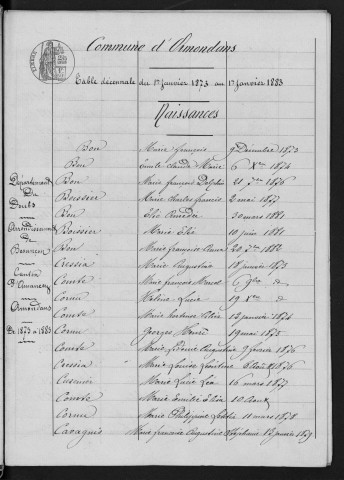 Commune d'Osmondans
Table décennale du 1er janvier 1873 au 1er janvier 1883
Naissances
Département
Du
Doubs
Arrondissement
De
Besançon
Canton
D'Amancey
Osmondans
De 1873 à 1883
Bon Marie françois 9 Décembre 1873
Bon Emile Claude Marie 6 Xbre 1874
Bon Marie françois Delphin 21 7bre 1876
Boissier Marie Charles françois 2 mai 1877
Bon Elie Amédée 30 mars 1881
Boissier Marie Elie 10 juin 1881
Bon Marie françoise 20 7bre 1882
Cressia Marie Augustine 18 janvier 1873
Comte Marie françois Marcel 6 9bre d°
Cornu Lucie 19 Xbre d°
Comte Marie 12 janvier 1874
Cornu Georges Henri 19 mai 1875
Comte Marie Augustine 9 février 1876
Cressia Marie Louise Léontine 6 Août 1876
Cusenier Marie Lucie Léa 16 mars 1877
Comte Marie Emilie Elisa 10 Août
Cornu Marie Philippine 11 mars 1878
Cavagnis Marie françoise Augustine Stéphanie 12 janvier 1879